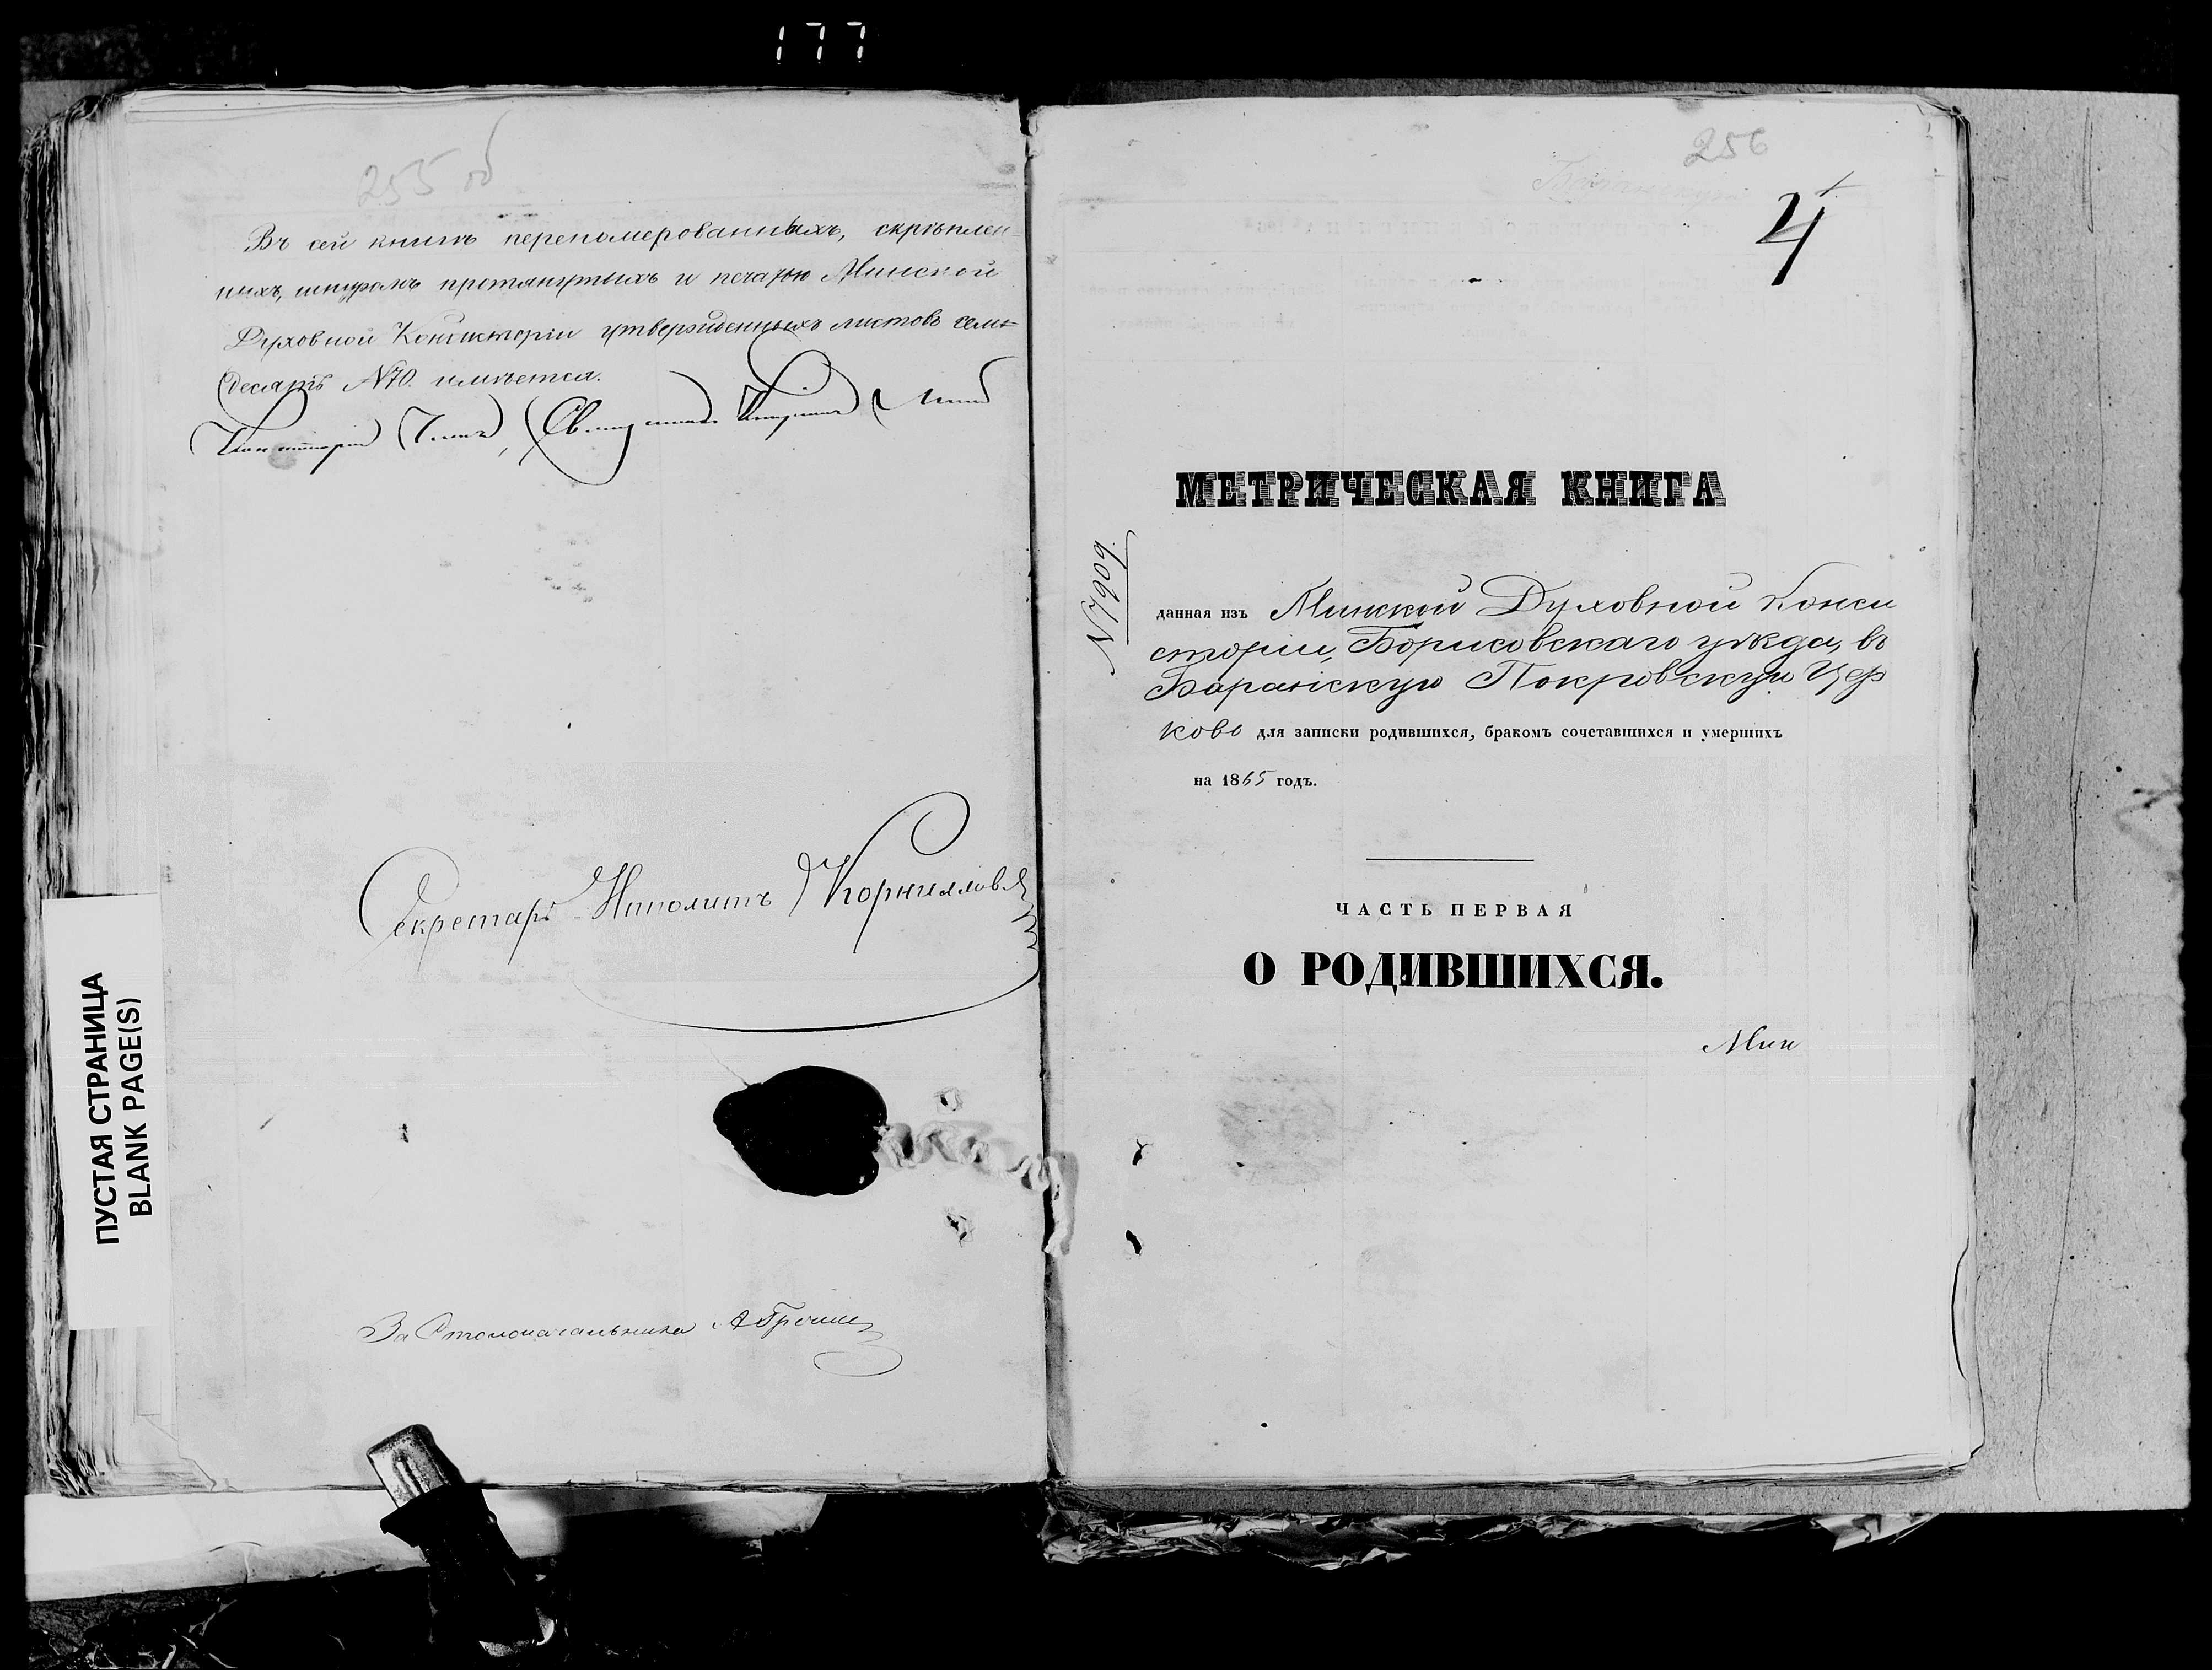 177
255 об
Въ сей книгѣ перенумерованныхъ, скрѣплен-
ныхъ, шнуромъ протянутыхъ и печатью Минской
Духовной Консисторіи утвержденныхъ листовъ семь-
десятъ №70. имѣется.
Консисторіи Членъ, Священникъ
Секретарь Ипполитъ Корниловъ
За Столоначальника А
ПУСТАЯ СТРАНИЦА
BLANK PAGE(S)
256
4
МЕТРИЧЕСКАЯ КНИГА
№7909.
данная изъ Минской Духовной Конси
сторіи, Борисовскаго уѣзда, въ
Баранскую Покровскую Цер
ковь для записки родившихся, бракомъ сочетавшихся и умершихъ
на 1865 годъ.
ЧАСТЬ ПЕРВАЯ
О РОДИВШИХСЯ.
Мин